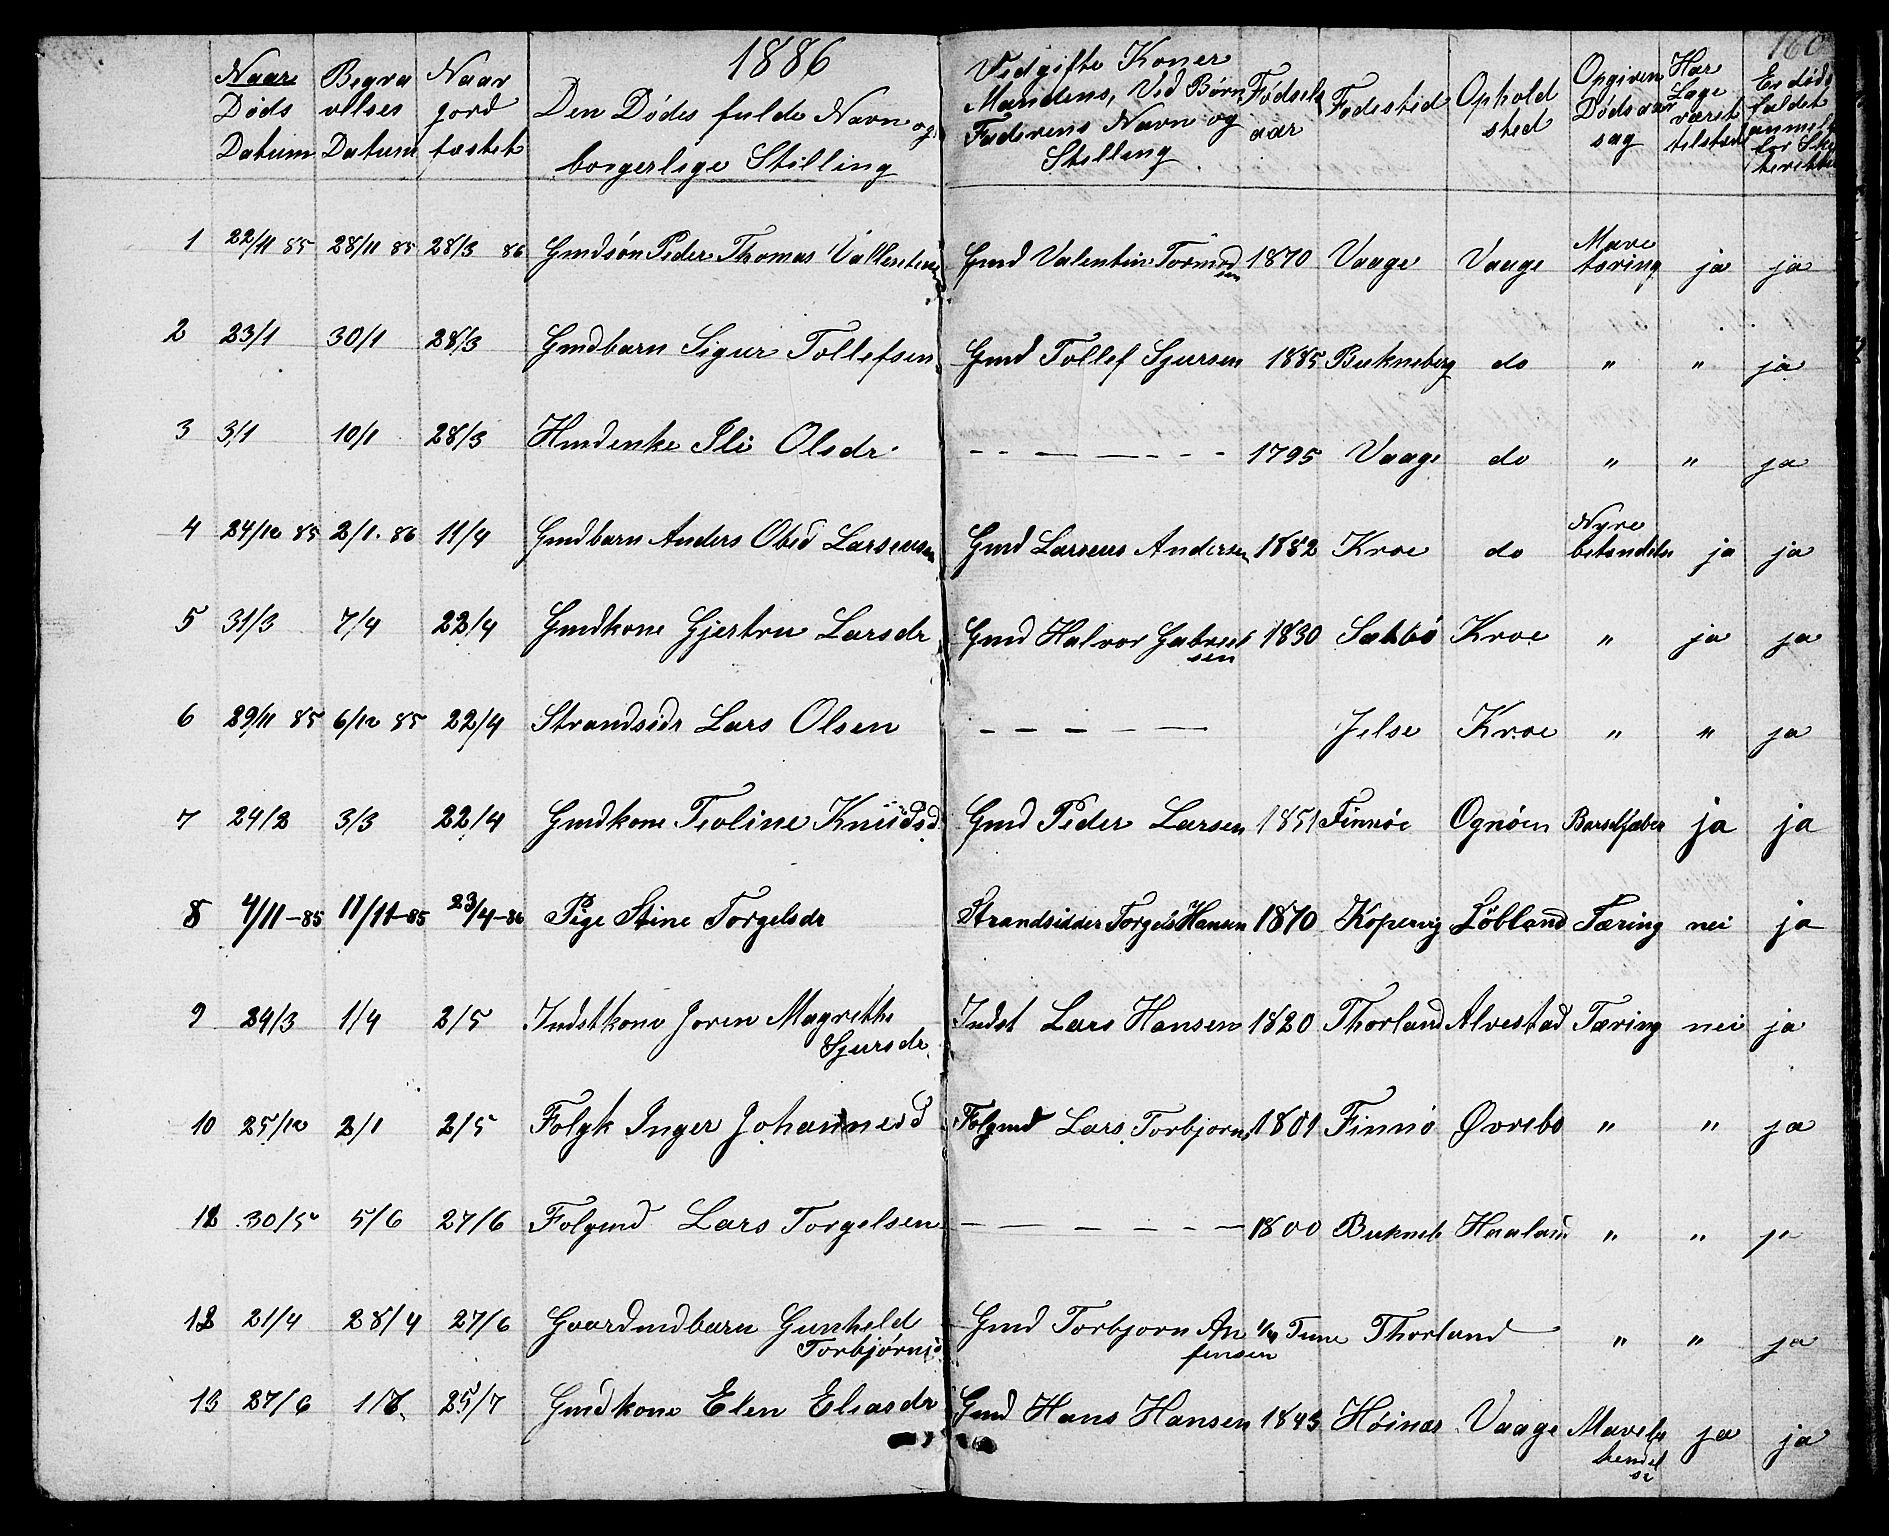 1886
160
Naar Døds Datum | Begravelses Datum | Naar jordfæstet | Den Dødes fulde Navn og borgerlige Stilling | Ved gifte Koner Mandens, Ved Børn Faderens Navn og Stilling | Fødsels aar | Fødested | Opholdsted | Opgiven Dødsaarsag | Har Læge været tilstede | Er døds faldet anmelt for
1 22/11 85 28/11 85 28/3 86 Gmdsøn Peder Thomas Gmd Valentin Tormodsen 1870 Vaage Vaage Mave tæring ja ja
2 23/1 30/1 28/3 Gmdbarn Sigur Tollefsen Gmd Tollef Sjursen 1885 Bukneberg do " " ja
3 3/1 10/1 28/3 Hmdenke Sli Olsdr - - - - - - - - 1795 Vaage do " " ja
4 24/12 85 2/1 86 11/4 Gmdbarn Anders Obed Larseusen Gmd Larseus Andersen 1882 Kroe do Nyre betændelse ja ja
5 31/3 7/4 22/4 Gmdkone Gjertru Larsdr Gmd Halvor Gabrielsen 1830 Kroe " ja ja
6 29/11 85 6/12 85 22/4 Strandsidr Lars Olsen - - - - - Jelse Kroe " " ja
7 24/2 3/3 22/4 Gmdkone Teoline Knudsd Gmd Peder Larsen 1851 Finnöe Ognöen Barselfæber ja ja
8 4/11-85 11/11-85 23/4-86 Pige Stine Torgelsdr Strandsidder Torgels Hansen 1870 Kopervig Löbland Tæring nei ja
9 24/3 1/4 2/5 Indstkone Joren Magrethe Sjursdr Indst Lars Hansen 1820 Thorland Alvestad Tæring nei ja
10 25/12 2/1 2/5 Folgk Inger Johannesd Folgmd Lars Torbjorns 1801 Finnö Øvrebö " " ja
12 30/5 5/6 27/6 Folgmd Lars Torgelsen - - - - - - 1800 Bukneb Haaland " " ja
12 21/4 28/4 27/6 Gaardmdbarn Gunheld Torbjørnsd Gmd Torbjorn Anfinsen Tune Thorland " " ja
13 27/6 1/7 25/7 Gmdkone Elen Elsasdr Gmd Hans Hansen 1843 Høinæs Vaage ja ja